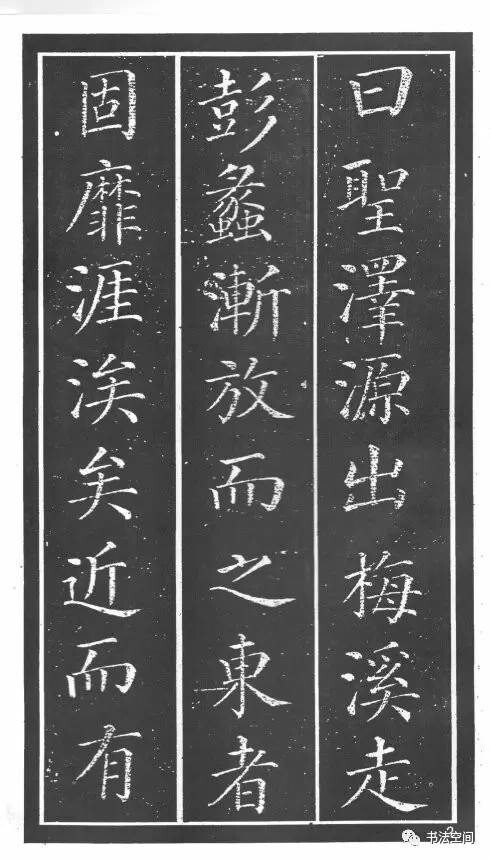 曰聖澤源出梅溪走
彭蠡漸放而之東者
固靡涯涘矣近而有
书法空间